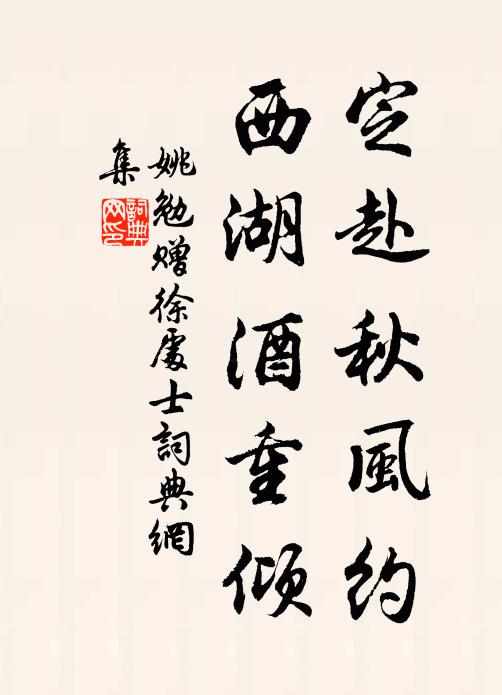 定赴秋風約
西湖酒重倾
姚勉赠徐處士詞典網
集
詞典
网印